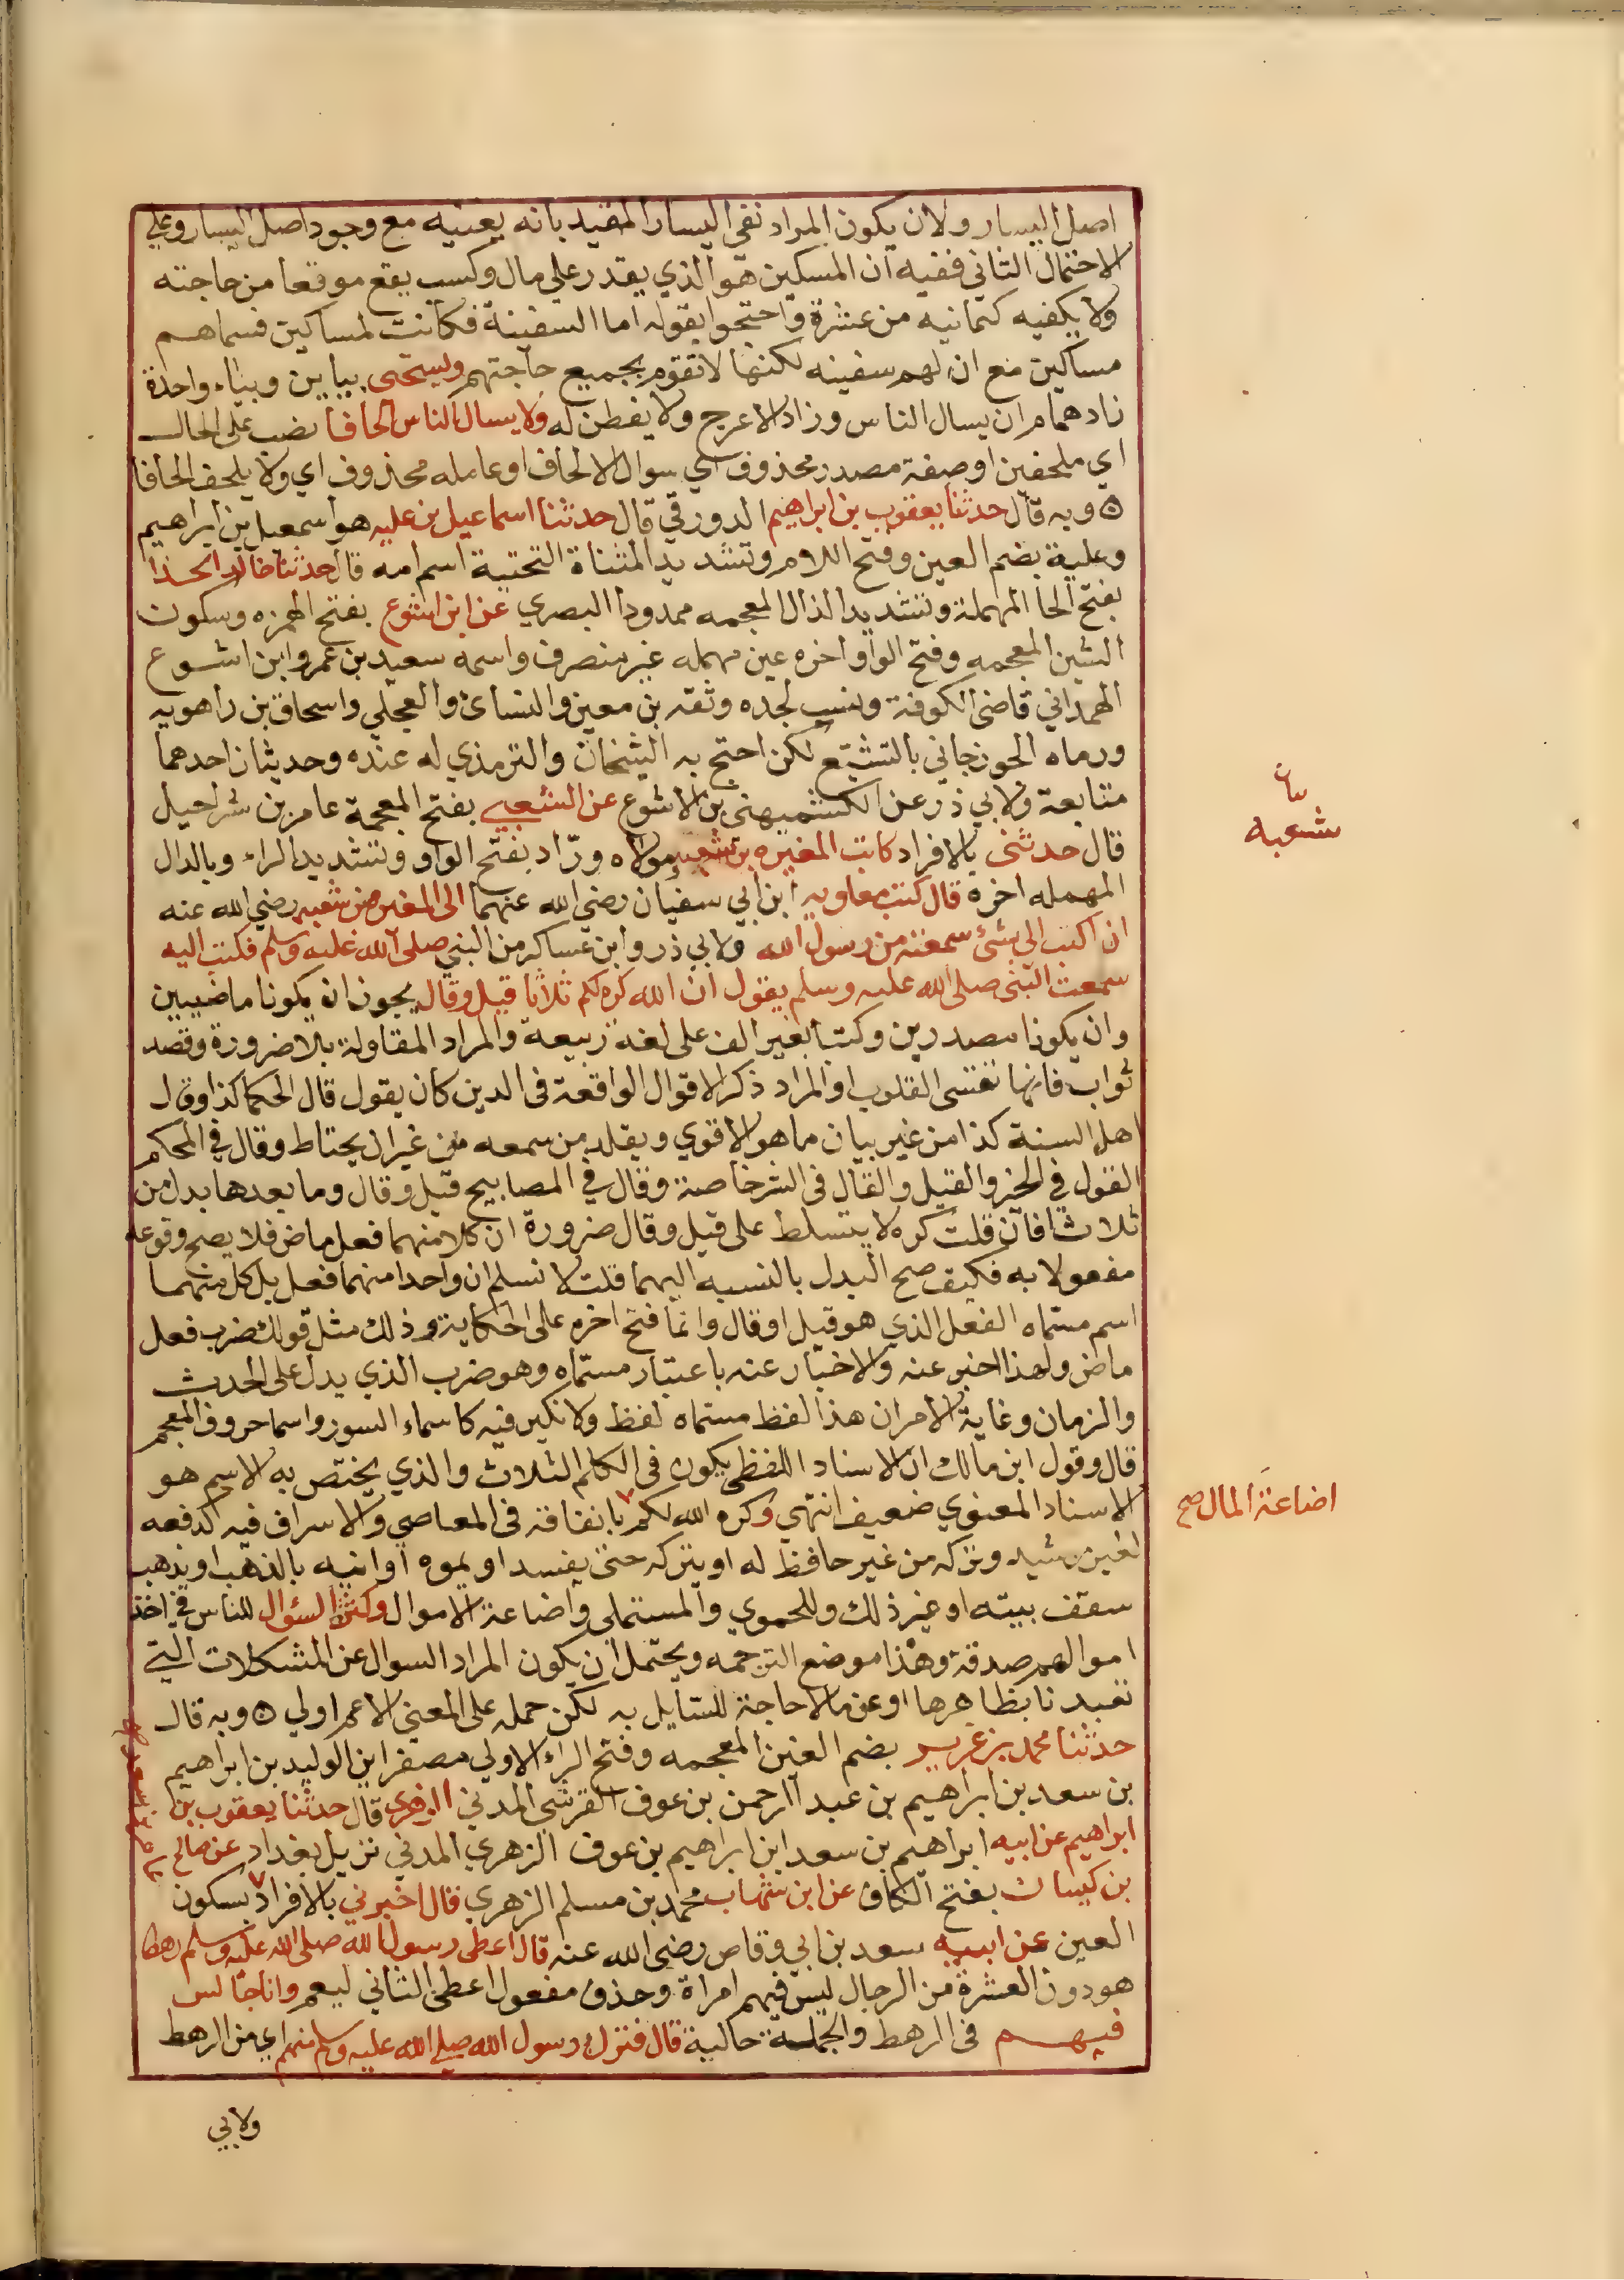 اصل اليسار ولان يكون المراد نفي اليسار المقيد بانه يغنيه مع وجود اصل اليسار وعلي
الاحتمال الثاني ففيه ان المسكين هو الذي يقدر علي مال وكسب يقع موقعا من حاجته
ولا يكفيه كثمانيه من عشرة واحتجوا بقوله اما السفينة فكانت لمساكين فسماهم
مساكين مع ان لهم سفينه لكنها لا تقوم بجميع حاجتهم ويستحيى بيايين وبياء واحدة
زاد همام ان يسال الناس وزاد الاعرج ولا يفطن له ولا يسال الناس الحافا نصب على الحال
اي ملحفين او صفة مصدر محذوف اي سوال الالحاف او عامله محذوف اي ولا يلحف الحافا
ه وبه قال حدثنا يعقوب بن ابراهيم الدورقي قال حدثنا اسماعيل بن عليه هو اسمعيل بن ابراهيم
وعلية بضم العين وفتح اللام وتشديد المثناة التحتية اسم امه قال حدثنا خالد الحذا
بفتح الحا المهملة وتشديد الذال المعجمه ممدودا البصري عن ابن اشوع بفتح الهمزه وسكون
الشين المعجمه وفتح الواو اخره عين مهمله غير منصرف واسمه سعيد بن عمرو ابن اشوع
الهمداني قاضي الكوفة ونسب لجده وثقه بن معين والنساى والعجلي واسحاق بن راهويه
ورماه الجوزجاني بالتشيع لكن احتج به الشيخان والترمذي له عنده وحديثان احدهما
متابعة ولابي ذر عن الكشميهنى بن الاشوع عن الشعبي بفتح المعجمة عامر بن شراحيل
قال حدثنى بالافراد كاتب المغيره بن شعبه مولاه ورّاد بفتح الواو وتشديد الراء وبالدال
المهمله اخره قال كتب معاويه ابن ابي سفيان رضي الله عنهما الى المغيره بن شعبه رضي الله عنه
ان اكتب الي بشئ سمعته من رسول الله ولابي ذر وابن عساكر من النبي صلى الله عليه وسلم فكتب اليه
سمعت النبي صلى الله عليه وسلم يقول ان الله كره لكم ثلاثا قيل وقال يجوز ان يكونا ماضيين
وان يكونا مصدرين وكتبا بغير الف على لغة ربيعة والمراد المقاولة بلا ضرورة وقصد
ثواب فانها تقسى القلوب او المراد ذكر الاقوال الواقعة فى الدين كان يقول قال الحكما كذا وقال
اهل السنة كذا من غير بيان ما هو الاقوي ويقلد من سمعه من غير ان يحتاط وقال في المحكم
القول في الخير والقيل والقال فى الشر خاصة وقال في المصابيح قيل وقال وما بعدها بدل من
ثلاثا فان قلت كره لا يتسلط على قيل وقال ضرورة ان كلا منهما فعل ماض فلا يصح وقوعه
مفعولا به فكيف صح البدل بالنسبه اليهما قلت لا نسلم ان واحدا منهما فعل بل كل منهما
اسم مسماه الفعل الذي هو قيل او قال وانما فتح اخره على الحكاية وذلك مثل قولك ضرب فعل
ماض ولهذا اخبر عنه والاخبار عنه باعتبار مسمّاه وهو ضرب الذي يدل على الحدث
والزمان وغاية الامر ان هذا لفظ مسماه لفظ ولا نكير فيه كاسماء السور واسما حروف المعجم
قال وقول ابن مالك ان الاسناد اللفظى يكون فى الكلم الثلاث والذي يختص به الاسم هو
الاسناد المعنوي ضعيف انتهي وكره الله لكم بانفاقه فى المعاصي والاسراف فيه كدفعه
لغير رشيد وتركه من غير حافظ له او يتركه حتى يفسد او يموه اوانيه بالذهب او يذهب
سقف بيته او غير ذلك وللحموي والمستملى واضاعة الاموال وكثرة السؤال للناس في اخذ
اموالهم صدقة وهذا موضع الترجمه ويحتمل ان يكون المراد السوال عن المشكلات التي
تعبدنا بظاهرها او عن ما لا حاجة للسايل به لكن حمله على المعنى الاعم اولي ه وبه قال
حدثنا محمد بن غرير بضم الغين المعجمه وفتح الراء الاولى مصغر ابن الوليد بن ابراهيم
بن سعد بن ابراهيم بن عبد الرحمن بن عوف القرشى المدني الزهري قال حدثنا يعقوب بن
ابراهيم عن ابيه ابراهيم بن سعد ابن ابراهيم بن عوف الزهري المدني نزيل بغداد عن صالح
بن كيسان بفتح الكاف عن ابن شهاب محمد بن مسلم الزهري قال اخبرني بالافراد بسكون
العين عن ابيه سعد بن ابي وقاص رضى الله عنه قال اعطى رسول الله صلى الله عليه وسلم رهطا
هو دون العشرة من الرجال ليس فيهم امراة وحذف مفعول اعطى الثاني ليعم وانا جالس
فيهم فى الرهط والجملة حالية قال فترك رسول الله صلى الله عليه وسلم منهم اي من الرهط
شعبه
اضاعة المال صح
ولابي